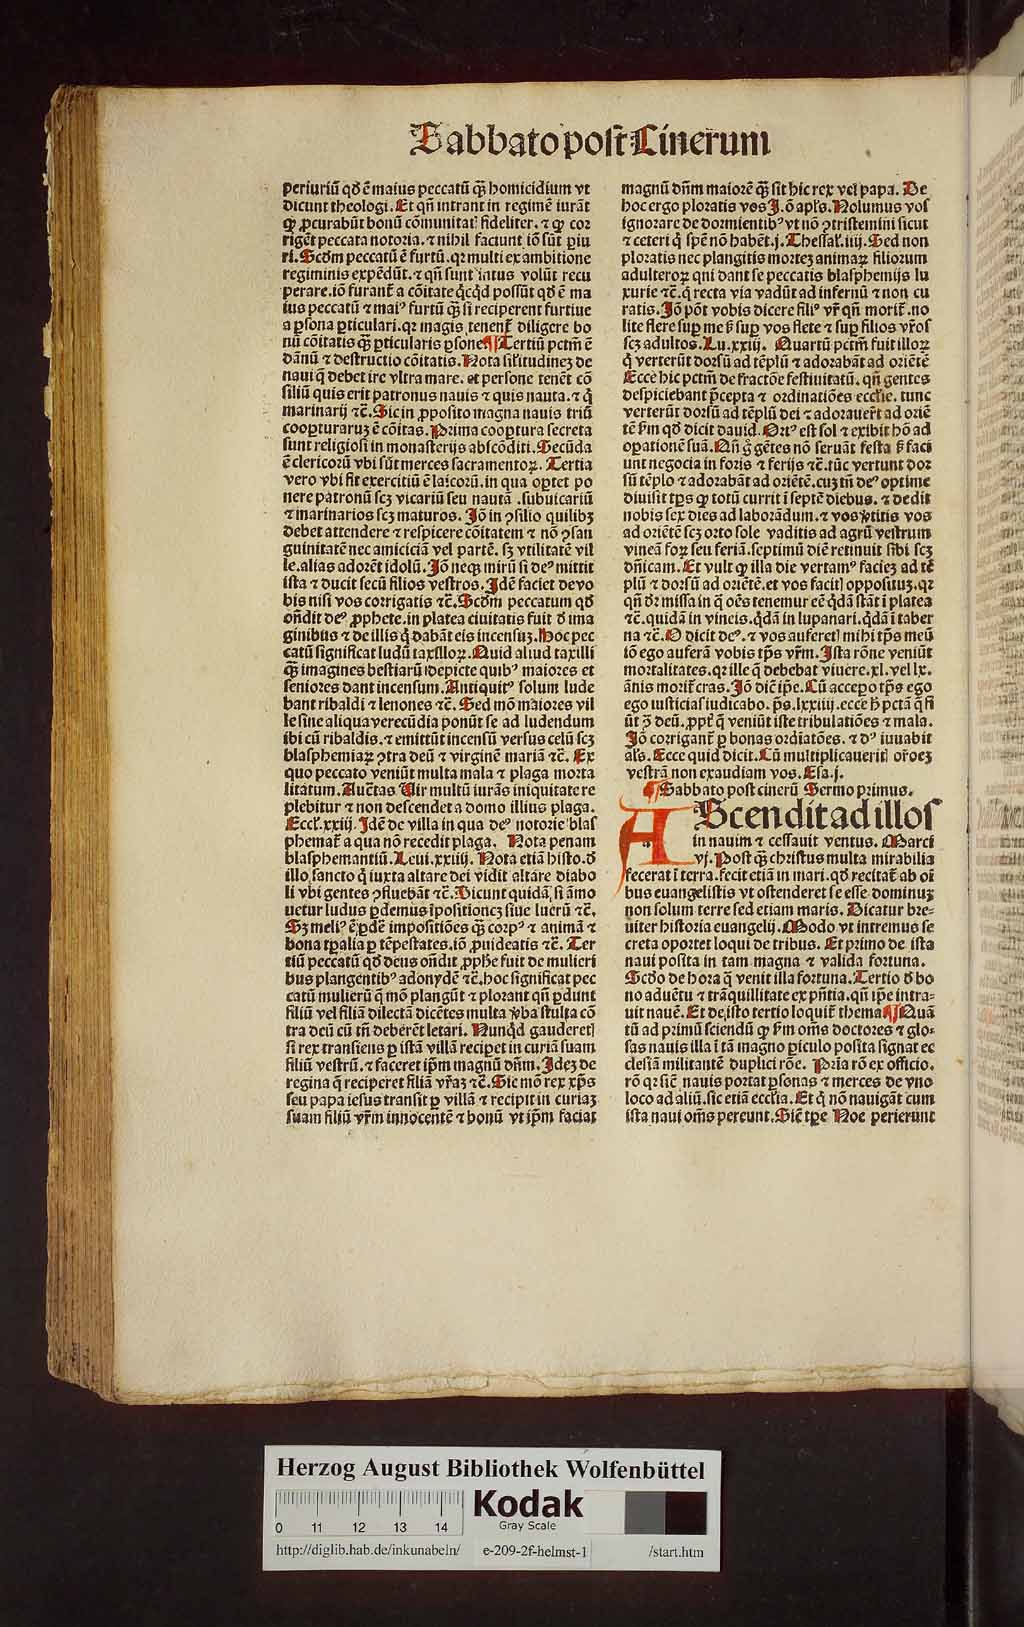 Sabbato post Cinerum
periuriū qđ ē maius peccatū q̄ȝ homicidium vt
dicunt theologi. Et qn̄ intrant in regimē iurāt
ꝙ ꝓcurabūt bonū cōmunitat᷑ fideliter. ⁊ ꝙ cor
rigēt peccata notoria. ⁊ nihil faciunt iō sūt ꝑiu
ri. Scđm peccatū ē furtū. qꝛ multi ex ambitione
regiminis expēdūt. ⁊ qn̄ sunt iatus volūt recu
perare. iō furant᷑ a cōitate q̄cq̄d possūt qđ ē ma
ius peccatū ⁊ maiꝰ furtū q̄ȝ si reciperent furtiue
a ꝑsona ꝑticulari. qꝛ magis tenent᷑ diligere bo
nū cōitatis q̄ȝ ꝑticularis ꝑsone ¶ Tertiū pctm̄ ē
dānū ⁊ destructio cōitatis. Nota sil᷑itudineȝ de
naui q̄ debet ire vltra mare. et persone tenēt cō
siliū quis erit patronus nauis ⁊ quis nauta. ⁊ q̄
marinarij ⁊c̄. Sic in ꝓposito magna nauis triū
cooꝑturaruȝ ē cōitas. Prima cooꝑtura secreta
sunt religiosi in monasterijs absconditi. Secūda
ē clericorū vbi sūt merces sacramentoꝝ. Tertia
vero vbi fit exercitiū ē laicorū. in qua oꝑtet po
nere patronū scȝ vicariū seu nautā .subuicariū
⁊ marinarios scȝ maturos. Jō in ꝯsilio quilibȝ
debet attendere ⁊ respicere cōitatem ⁊ nō ꝯsan
guinitatē nec amiciciā vel partē. sȝ vtilitatē vil
le. alias adorēt idolū. Jō neqȝ mirū si deꝰ mittit
ista ⁊ ducit secū filios vestros. Jdē faciet de vo
bis nisi vos corrigatis ⁊c̄. Scđm peccatum qđ
on̄dit deꝰ ꝓphete. in platea ciuitatis fuit đ ima
ginibus ⁊ de illis q̄ dabāt eis incensuȝ. Hoc pec
catū significat ludū taxilloꝝ. Quid aliud taxilli
q̄ȝ imagines bestiarū depicte quibꝰ maiores et
seniores dant incensum. Antiquitꝰ solum lude
bant ribaldi ⁊ lenones ⁊c̄. Sed mō maiores vil
le sine aliqua verecūdia ponūt se ad ludendum
ibi cū ribaldis. ⁊ emittūt incensū versus celū scȝ
blasphemiaꝝ ꝯtra deū ⁊ virginē mariā ⁊c̄. Ex
quo peccato veniūt multa mala ⁊ plaga morta
litatum. Auct᷑as Uir multū iurās iniquitate re
plebitur ⁊ non descendet a domo illius plaga.
Eccl᷑. xxiij. Jdē de villa in qua deꝰ notorie blas
phemat᷑ a qua nō recedit plaga. Nota penam
blasphemantiū. Leui. xxiiij. Nota etiā histo. đ
illo sancto q̄ iuxta altare dei vidit altāre diabo
li vbi gentes ꝯfluebāt ⁊c̄. Dicunt quidā. si āmo
uetur ludus ꝑdemus īpositioneȝ siue luerū ⁊c̄.
Sȝ meliꝰ ē ꝑdē impositiōes q̄ȝ corpꝰ ⁊ animā ⁊
bona tꝑalia ꝑ tēpestates. iō ꝓuideatis ⁊c̄. Ter
tiū peccatū qđ deus on̄dit ꝓphe fuit de mulieri
bus plangentibꝰ adonydē ⁊c̄. hoc significat pec
catū mulierū q̄ mō plangūt ⁊ plorant qn̄ ꝑdunt
filiū vel filiā dilectā dicētes multa v̓ba stulta cō
tra deū cū tn̄ deberēt letari. Nunqđ gauderet᷑
si rex transiens ꝑ istā villā reciꝑet in curiā suam
filiū vestrū. ⁊ faceret ip̄m magnū dn̄m. Jdeȝ de
regina q̄ reciperet filiā vr̄aȝ ⁊c̄. Sic mō rex xp̄s
seu papa iesus transit ꝑ villā ⁊ recipit in curiaȝ
suam filiū vr̄m innocentē ⁊ bonū vt ip̄m faciat
magnū dn̄m maiorē q̄ȝ sit hic rex vel papa. De
hoc ergo ploratis vos J. ō apl᷑s. Nolumus vos
ignorare de dormientibꝰ vt nō ꝯtristemini sicut
⁊ ceteri q̄ spē nō habēt. j. Thessal᷑. iiij. Sed non
ploratis nec plangitis morteȝ animaꝝ filiorum
adulteroꝝ qui dant se peccatis blasphemijs lu
xurie ⁊c̄. q̄ recta via vadūt ad infernū ⁊ non cu
ratis. Jō pōt vobis dicere filiꝰ vr̄ qn̄ morit᷑. no
lite flere suꝑ me ẜ suꝑ vos flete ⁊ suꝑ filios vr̄os
scȝ adultos. Lu. xxiij. Quartū pctm̄ fuit illoꝝ
q̄ verterūt dorsū ad tēplū ⁊ adorabāt ad oriētē
Ecce hic pctm̄ de fractōe festiuitatū. qn̄ gentes
despiciebant p̄cepta ⁊ ordinatiōes eccl᷑ie. tunc
verterūt dorsū ad tēplū dei ⁊ adorauert᷑ ad oriē
tē ẜm qđ dicit dauid. Ortꝰ est sol ⁊ exibit hō ad
oꝑationē suā. Nn̄ g̊ gētes nō seruāt festa ẜ faci
unt negocia in foris ⁊ ferijs ⁊c̄. tūc vertunt dor
sū tēplo ⁊ adorabāt ad oriētē. cuȝ tn̄ deꝰ optime
diuisit tp̄s ꝙ totū currit ī septē diebus. ⁊ dedit
nobis sex dies ad laborādum. ⁊ vos v̓titis vos
ad oriētē scȝ orto sole vaditis ad agrū vestrum
vineā foꝝ seu feriā. septimū diē retinuit sibi scȝ
dn̄icam. Et vult ꝙ illa die vertamꝰ facieȝ ad tē
plū ⁊ dorsū ad oriētē. et vos facit᷑ oppositum. qꝛ
qn̄ dr̄ missa in q̄ oēs tenemur eē q̄dā stāt ī platea
⁊c̄. quidā in vineis. q̄dā in lupanari. q̄dā ī taber
na ⁊c̄. O dicit deꝰ. ⁊ vos auferet᷑ mihi tp̄s meū
iō ego auferā vobis tp̄s vr̄m. Jsta rōne veniūt
mortalitates. qꝛ ille q̄ debebat viuere. xl. vel lx.
ānis morit᷑ cras. Jō dic̄ ip̄e. Cū accepo tp̄s ego
ego iusticias iudicabo. p̄s. lxxiiij. ecce ꝑ pctā q̄ fi
ūt ꝯ̄ deū. ꝓpt᷑ q̄ veniūt iste tribulatiōes ⁊ mala.
Jō corrigant᷑ ꝑ bonas ordiatōes. ⁊ dꝰ iuuabit
al᷑s. Ecce quid dicit. Cū multiplicauerit᷑ or̄oeȝ
vestrā non exaudiam vos. Esa. j.
¶ Sabbato post cinerū Sermo primus.
AScendit ad illos
in nauim ⁊ cessauit ventus. Marci
vj. Post q̄ȝ christus multa mirabilia
fecerat ī terra. fecit etiā in mari. qđ recitat᷑ ab oī
bus euangelistis vt ostenderet se esse dominuȝ
non solum terre sed etiam maris. Dicatur bre⸗
uiter historia euangelij. Modo vt intremus se
creta oportet loqui de tribus. Et primo de ista
naui posita in tam magna ⁊ valida fortuna.
Scđo de hora q̄ venit illa fortuna. Tertio đ bo
no aduētu ⁊ trāquillitate ex pn̄tia. qn̄ ip̄e intra⸗
uit nauē. Et de isto tertio loquit᷑ thema ¶ Quā
tū ad primū sciendū ꝙ ẜm om̄s doctores ⁊ glo⸗
sas nauis illa ī tā magno ꝑiculo posita signat ec
clesiā militantē duplici rōe. Pria rō ex officio.
rō qꝛ sic̄ nauis portat ꝑsonas ⁊ merces de vno
loco ad aliū. sic etiā eccl᷑ia. Et q̄ nō nauigāt cum
ista naui om̄s pereunt. Sic̄ tꝑe Noe perierunt
Herzog August Bibliothek Wolfenbüttel
0 11 12 13 14
Kodak
Gray Scale
http://diglib.hab.de/inkunabeln/ e-209-2f-helmst-1 /start.htm